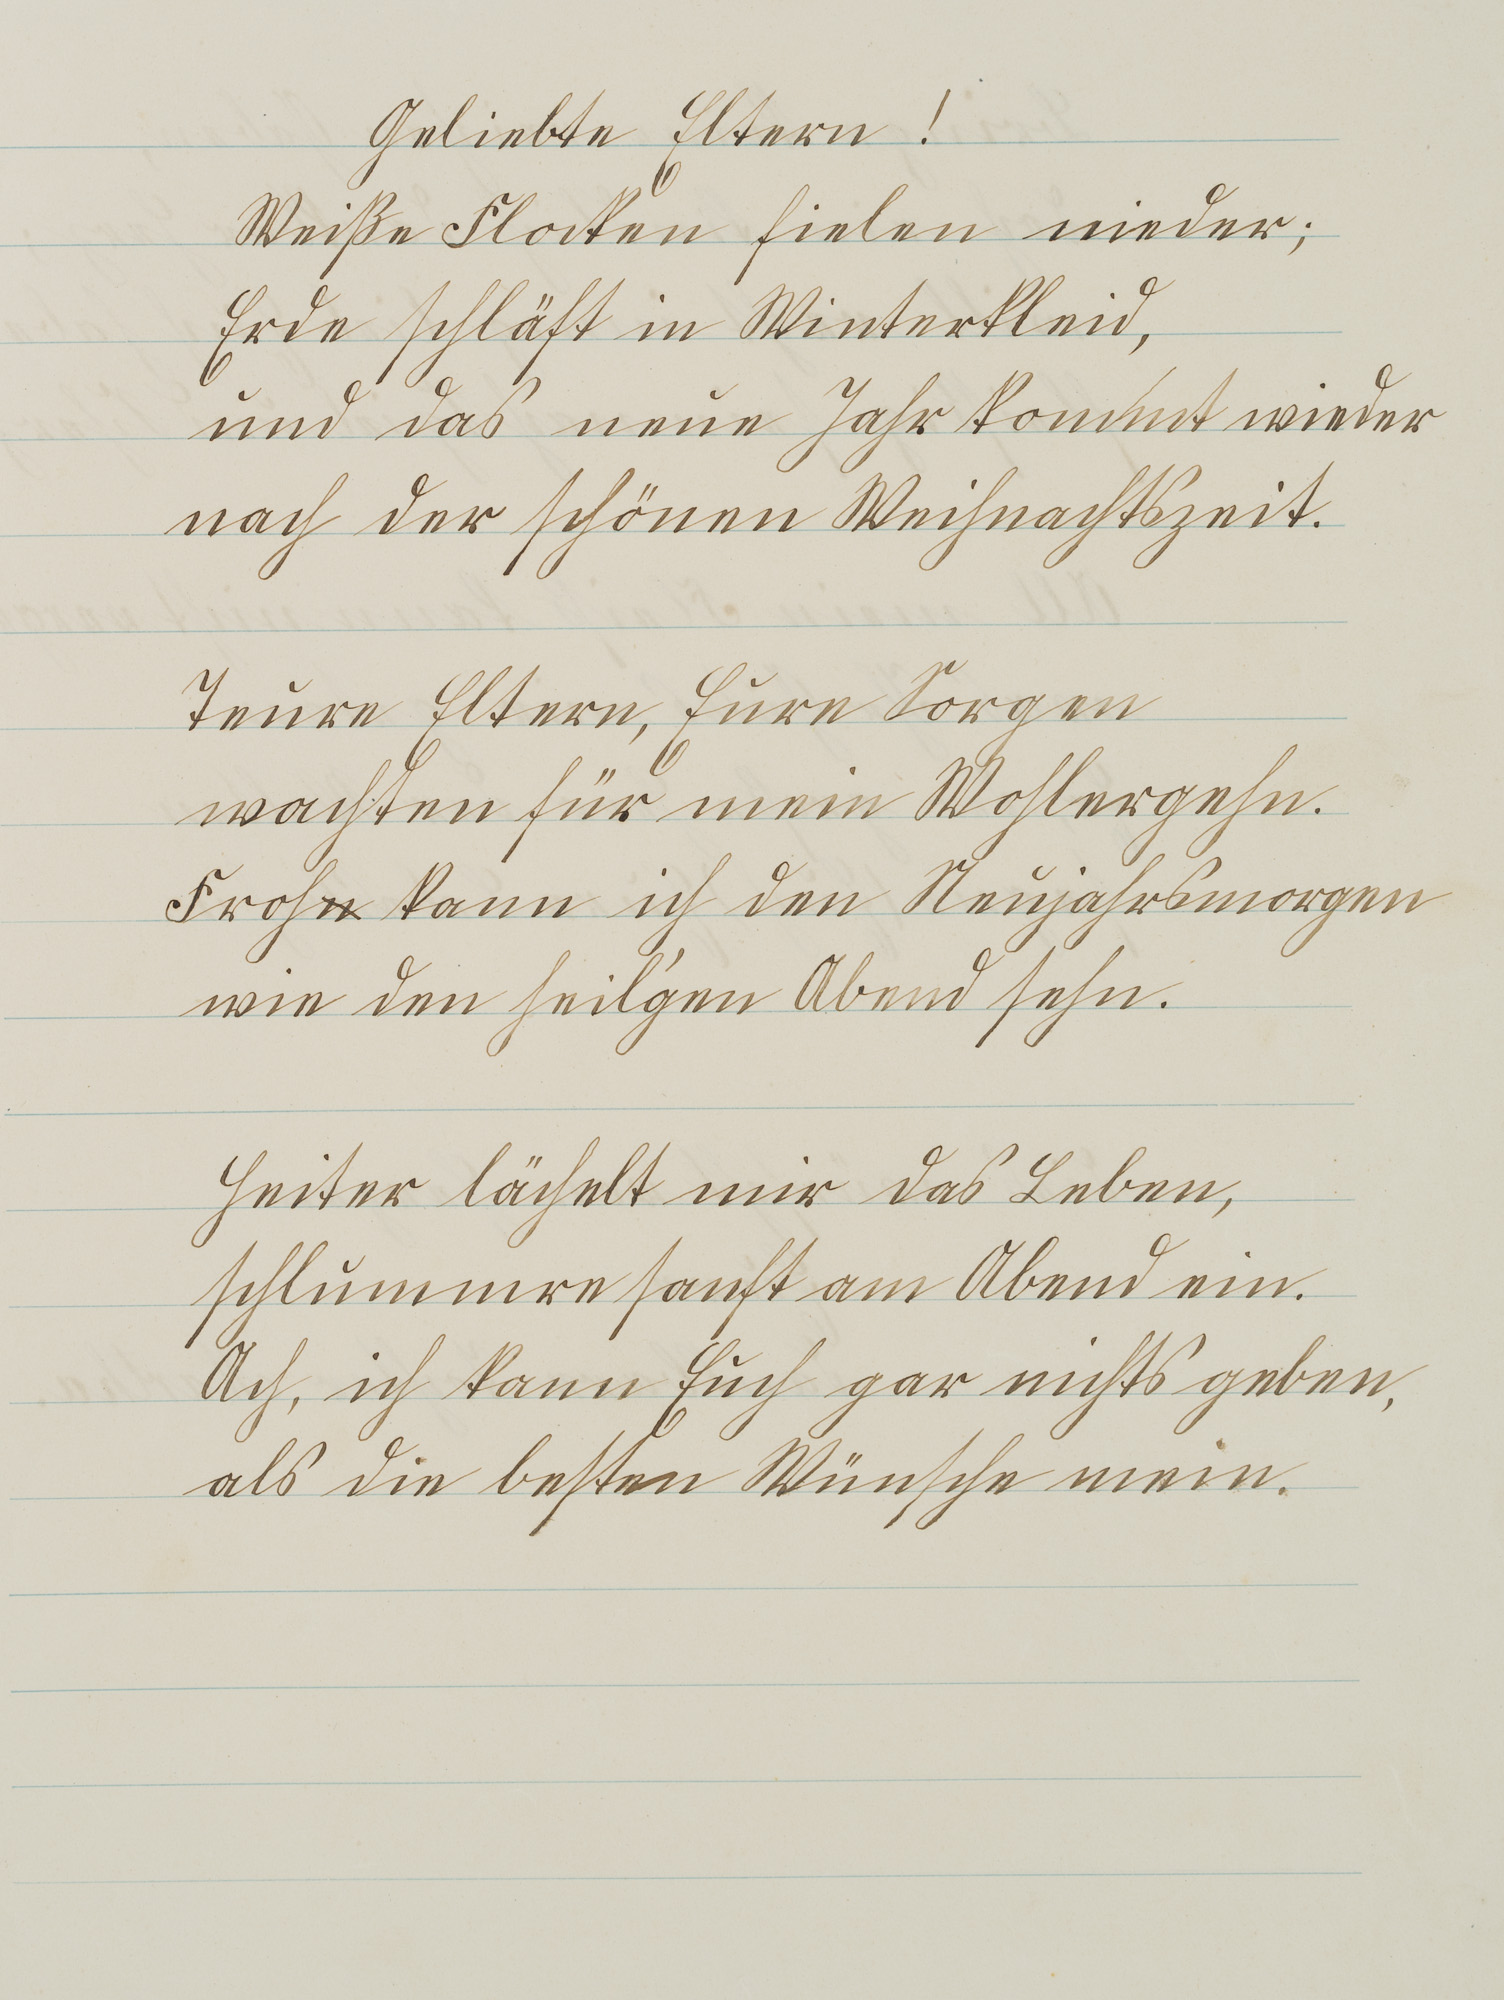 Geliebte Eltern!
Weiße Flocken fielen nieder;
Erde schläft in Winterkleid,
und das neue Jahr kommt wieder
nach der schönen Weihnachtszeit.
Teure Eltern, Eure Sorgen
wachten für mein Wohlergehn.
Froh kann ich den Neujahrsmorgen
wie den heil'gen Abend sehn.
Heiter lächelt mir das Leben,
schlummre sanft am Abend ein.
Ach, ich kann Euch gar nichts geben,
als die besten Wünsche mein.